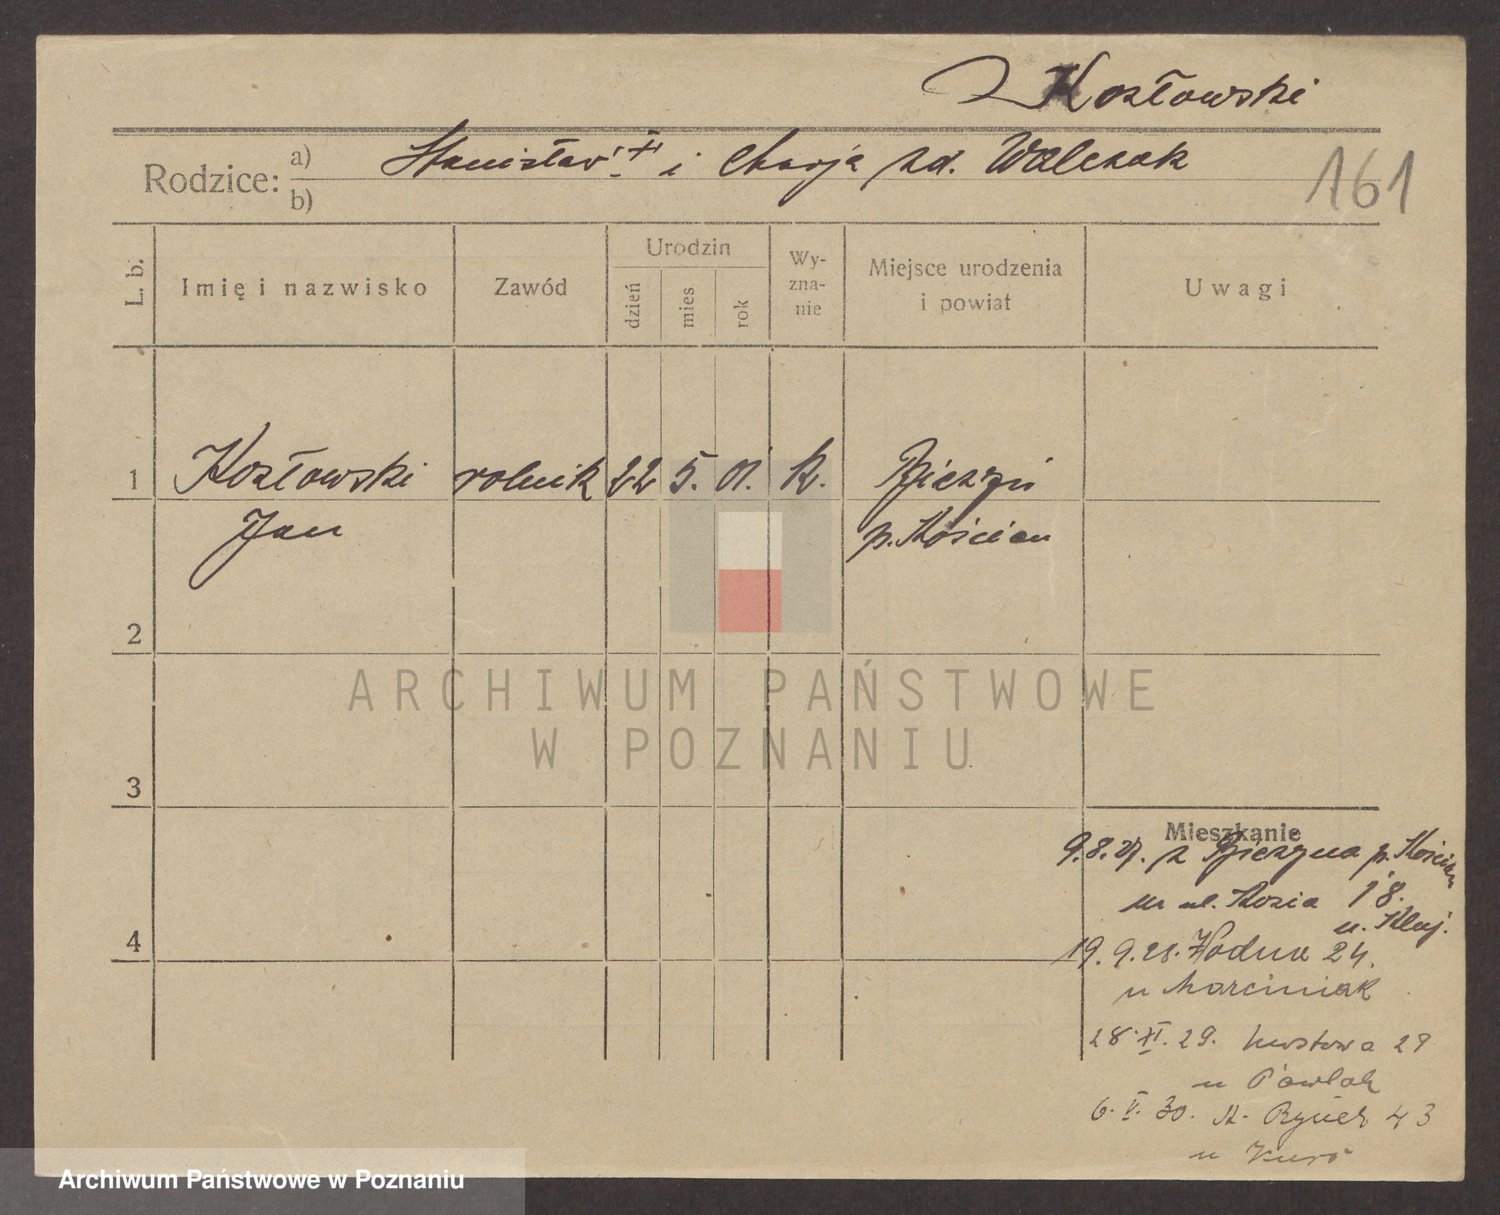 Kozłowski
Rodzice: a) Stanisław + i Marja zd. Walczak
b)
161
L. b.
Imię i nazwisko
Zawód
Urodzin
dzień
mies
rok
Wy-
zna-
nie
Miejsce urodzenia
i powiat
Uwagi
1 Kozłowski rolnik 22 5. 01. k.
Jan p. Kościan
2
3
4
Mieszkanie
9.8. z p. Kościan
ul. Kozia 18.
19. 9. 28. Wodna 24.
u Marciniak
28. XI. 29. 29
u Pawlak
6. V. 30. St. Rynek 43
u
ARCHIWUM PAŃSTWOWE
W POZNANIU
Archiwum Państwowe w Poznaniu